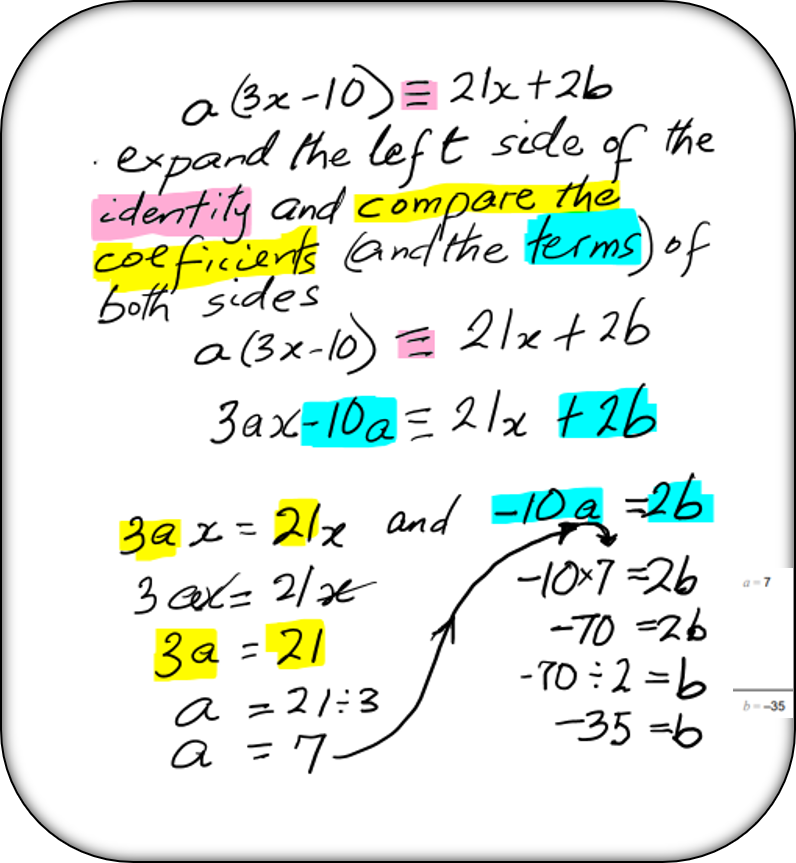 a(3x-10) ≡ 21x+2b
. expand the left side of the
identity and compare the
coefficients (and the terms) of
both sides
a(3x-10) ≡ 21x+2b
3ax-10a ≡ 21x +2b
3ax = 21x and -10a = 2b
3ax = 21x
3a = 21
a = 21÷3
a = 7
-10×7 = 2b
-70 = 2b
-70÷2 = b
-35 = b
a = 7
b = -35